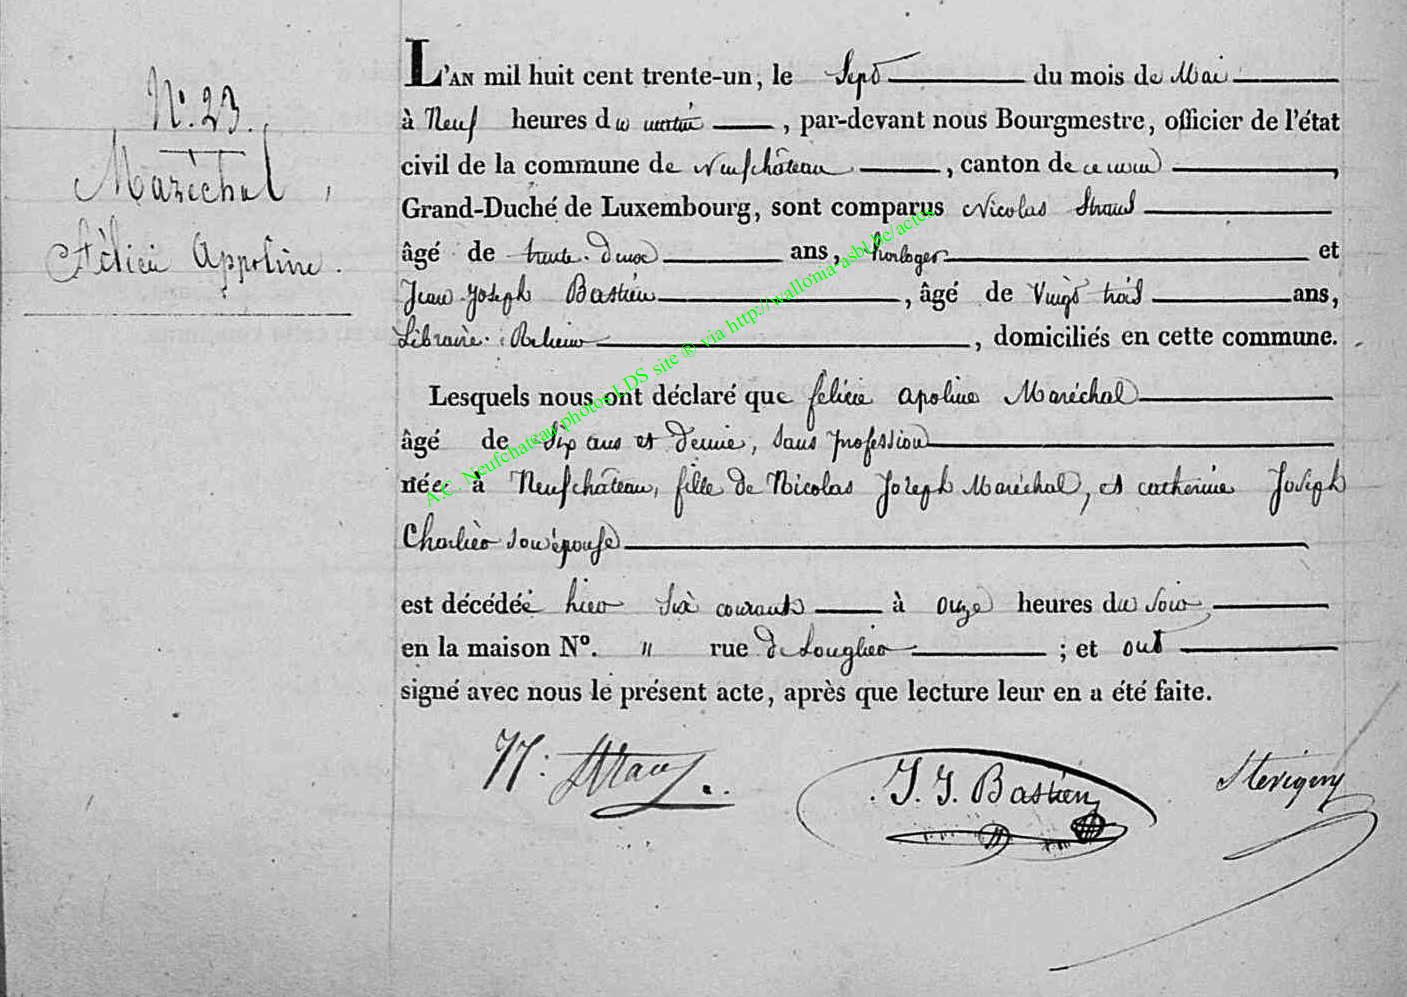 N.° 23.
Maréchal,
Félicie Appoline.
L'AN mil huit cent trente-un, le Sept du mois de Mai
à Neuf heures du matin, par-devant nous Bourgmestre, officier de l'état
civil de la commune de Neufchâteau, canton de ce nom,
Grand-Duché de Luxembourg, sont comparus Nicolas
âgé de trente-deux ans, horloger et
Jean-Joseph Bastien, âgé de Vingt trois ans,
Libraire-Relieur, domiciliés en cette commune.
Lesquels nous ont déclaré que félicie apoline Maréchal
âgé de Six ans et demie, sans profession
née à Neufchâteau, fille de Nicolas Joseph Maréchal, et catherine Joseph
Charlier son épouse
est décédée hier Six courant à onze heures du soir
en la maison N°. " rue de Longlier; et ont
signé avec nous le présent acte, après que lecture leur en a été faite.
N: J. J. Bastien
A.C. Neufchateau photos LDS site ® via http://wallonia-asbl.be/actes